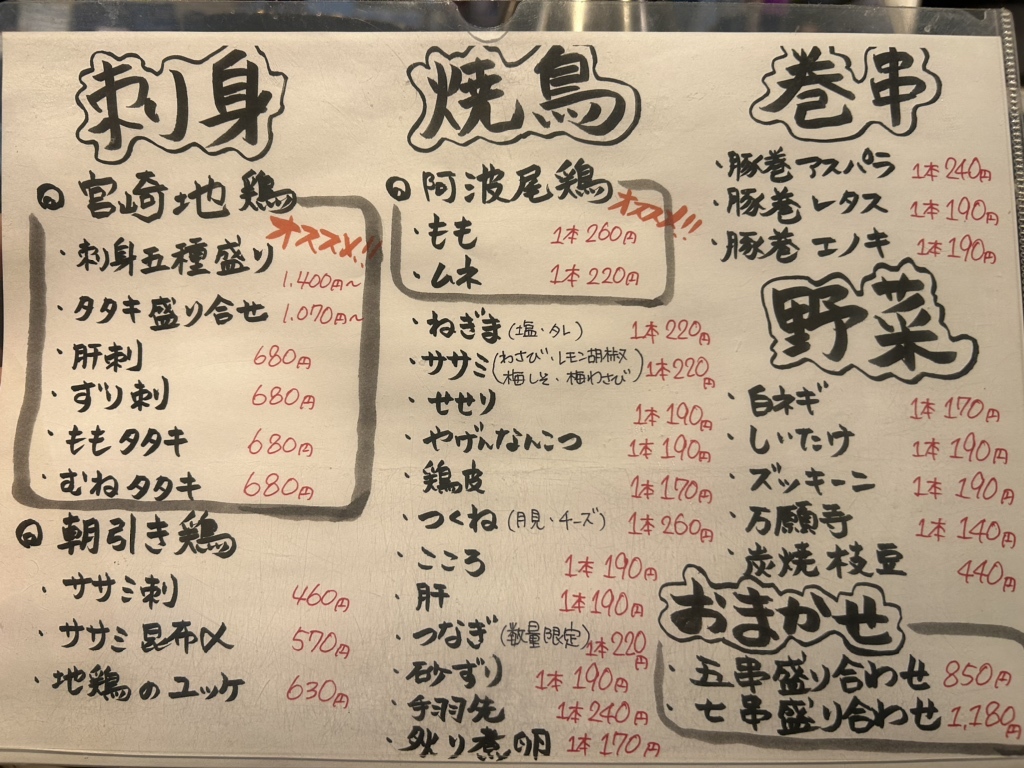 刺身
宮崎地鶏
オススメ!!
・刺身五種盛り 1.400円~
・タタキ盛り合せ 1.070円~
・肝刺 680円
・ずり刺 680円
・ももタタキ 680円
・むねタタキ 680円
朝引き鶏
・ササミ刺 460円
・ササミ昆布〆 570円
・地鶏のユッケ 630円
焼鳥
阿波尾鶏
オススメ!!
・もも 1本260円
・ムネ 1本220円
・ねぎま(塩・タレ) 1本220円
・ササミ(わさび・レモン胡椒 梅しそ・梅わさび) 1本220円
・せせり 1本190円
・やげんなんこつ 1本190円
・鶏皮 1本170円
・つくね(月見・チーズ) 1本260円
・こころ 1本190円
・肝 1本190円
・つなぎ(数量限定) 1本220円
・砂ずり 1本190円
・手羽先 1本240円
・炙り煮卵 1本170円
巻串
・豚巻アスパラ 1本240円
・豚巻レタス 1本190円
・豚巻エノキ 1本190円
野菜
・白ネギ 1本170円
・しいたけ 1本190円
・ズッキーニ 1本190円
・万願寺 1本140円
・炭焼枝豆 440円
おまかせ
・五串盛り合わせ 850円
・七串盛り合わせ 1,180円